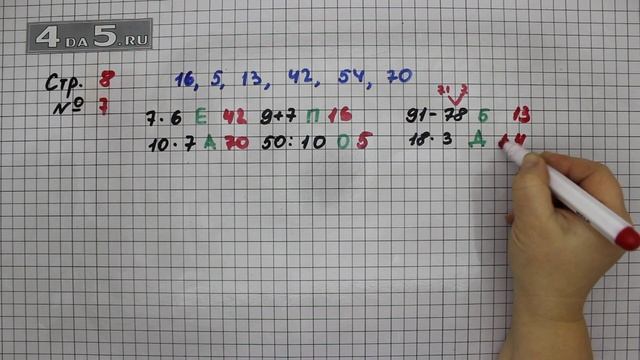 4 DA 5.RU
Стр. 8 16, 5, 13, 42, 54, 70
№ 7
71 7
7·6 Е 42 9+7 П 16 91-78 Б 13
10·7 А 70 50:10 О 5 18·3 Д 4